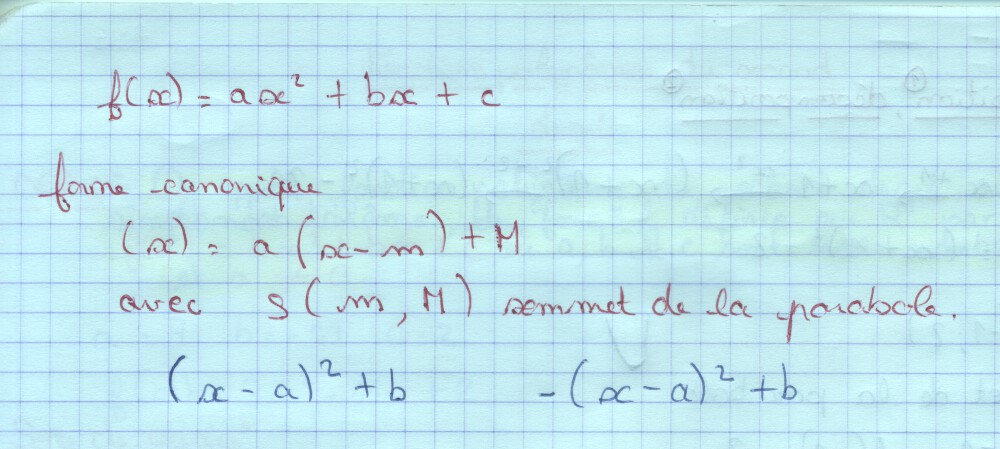 f(x) = ax² + bx + c
forme canonique
(x) = a (x - m) + M
avec S (m, M) sommet de la parabole.
(x - a)² + b    - (x - a)² + b